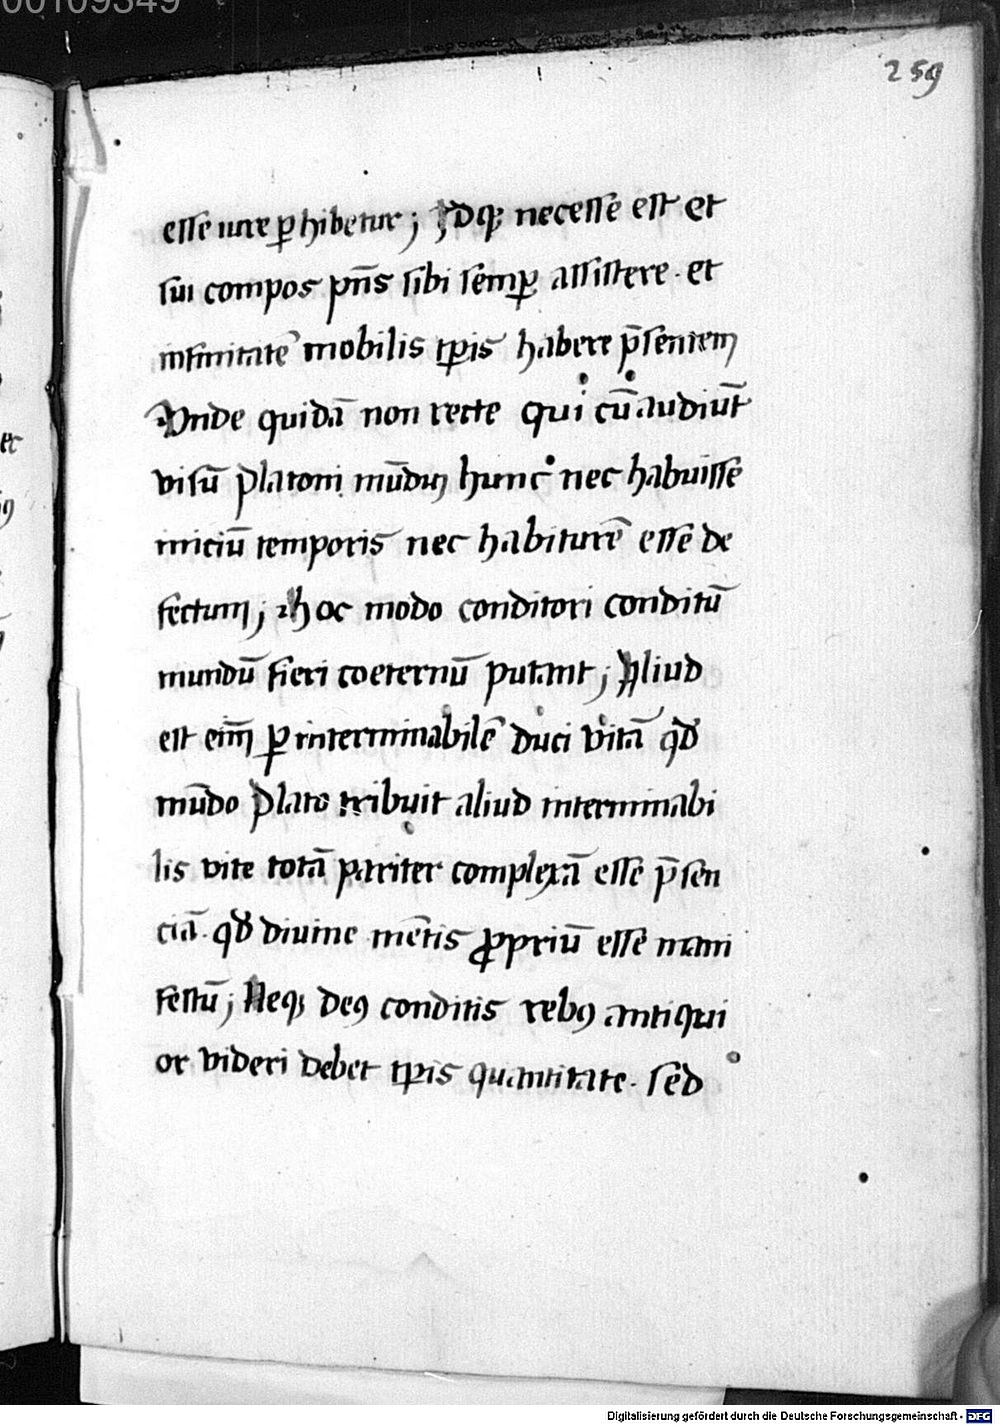 00109349
259
esse iure ꝑhibetur; Idqꝫ necesse est et
sui compos pn̄s sibi semꝑ assistere. et
infinitatē mobilis tꝑis habere p̄sentem
Vnde quidā non recte qui cū audiūt
visū platoni mūdum hunc nec habuisse
iniciū temporis nec habiturē esse de
fectum; hoc modo conditori conditū
mundū fieri coeternū putant; Aliud
est enī ꝑ interminabilē duci vitā qd̄
mūdo plato tribuit aliud interminabi
lis vite totā pariter complexā esse p̄sen
ciā. qd̄ diuine mētis ꝓpriū esse mani
festū; Neqꝫ deꝰ conditis rebꝰ antiqui
or videri debet tꝑis quantitate. sed
Digitalisierung gefördert durch die Deutsche Forschungsgemeinschaft - DFG